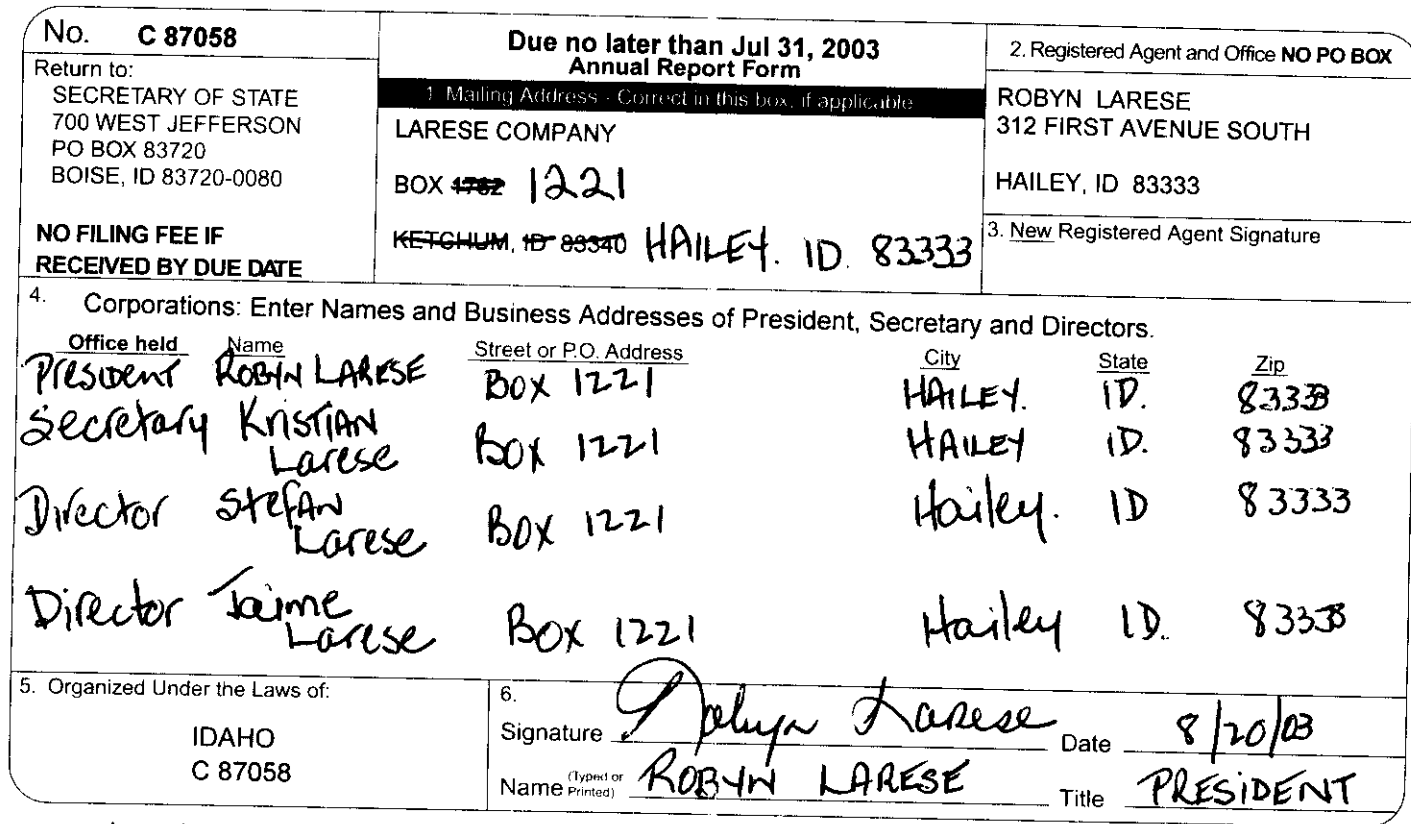 No. C 87058
Return to:
SECRETARY OF STATE
700 WEST JEFFERSON
PO BOX 83720
BOISE, ID 83720-0080
NO FILING FEE IF
RECEIVED BY DUE DATE
Due no later than Jul 31, 2003
Annual Report Form
1. Mailing Address - Correct in this box, if applicable
LARESE COMPANY
BOX 1782 1221
KETCHUM, ID 83340 HAILEY. ID. 83333
2. Registered Agent and Office NO PO BOX
ROBYN LARESE
312 FIRST AVENUE SOUTH
HAILEY, ID 83333
3. New Registered Agent Signature
4. Corporations: Enter Names and Business Addresses of President, Secretary and Directors.
Office held Name Street or P.O. Address City State Zip
President ROBYN LARESE BOX 1221 HAILEY. ID. 83333
Secretary KRISTIAN Larese BOX 1221 HAILEY ID. 83333
Director Stefan Larese BOX 1221 Hailey. ID 83333
Director Jaime Larese Box 1221 Hailey ID. 83333
5. Organized Under the Laws of:
IDAHO
C 87058
6.
Signature Robyn Larese Date 8/20/03
Name (Typed or Printed) ROBYN LARESE Title PRESIDENT